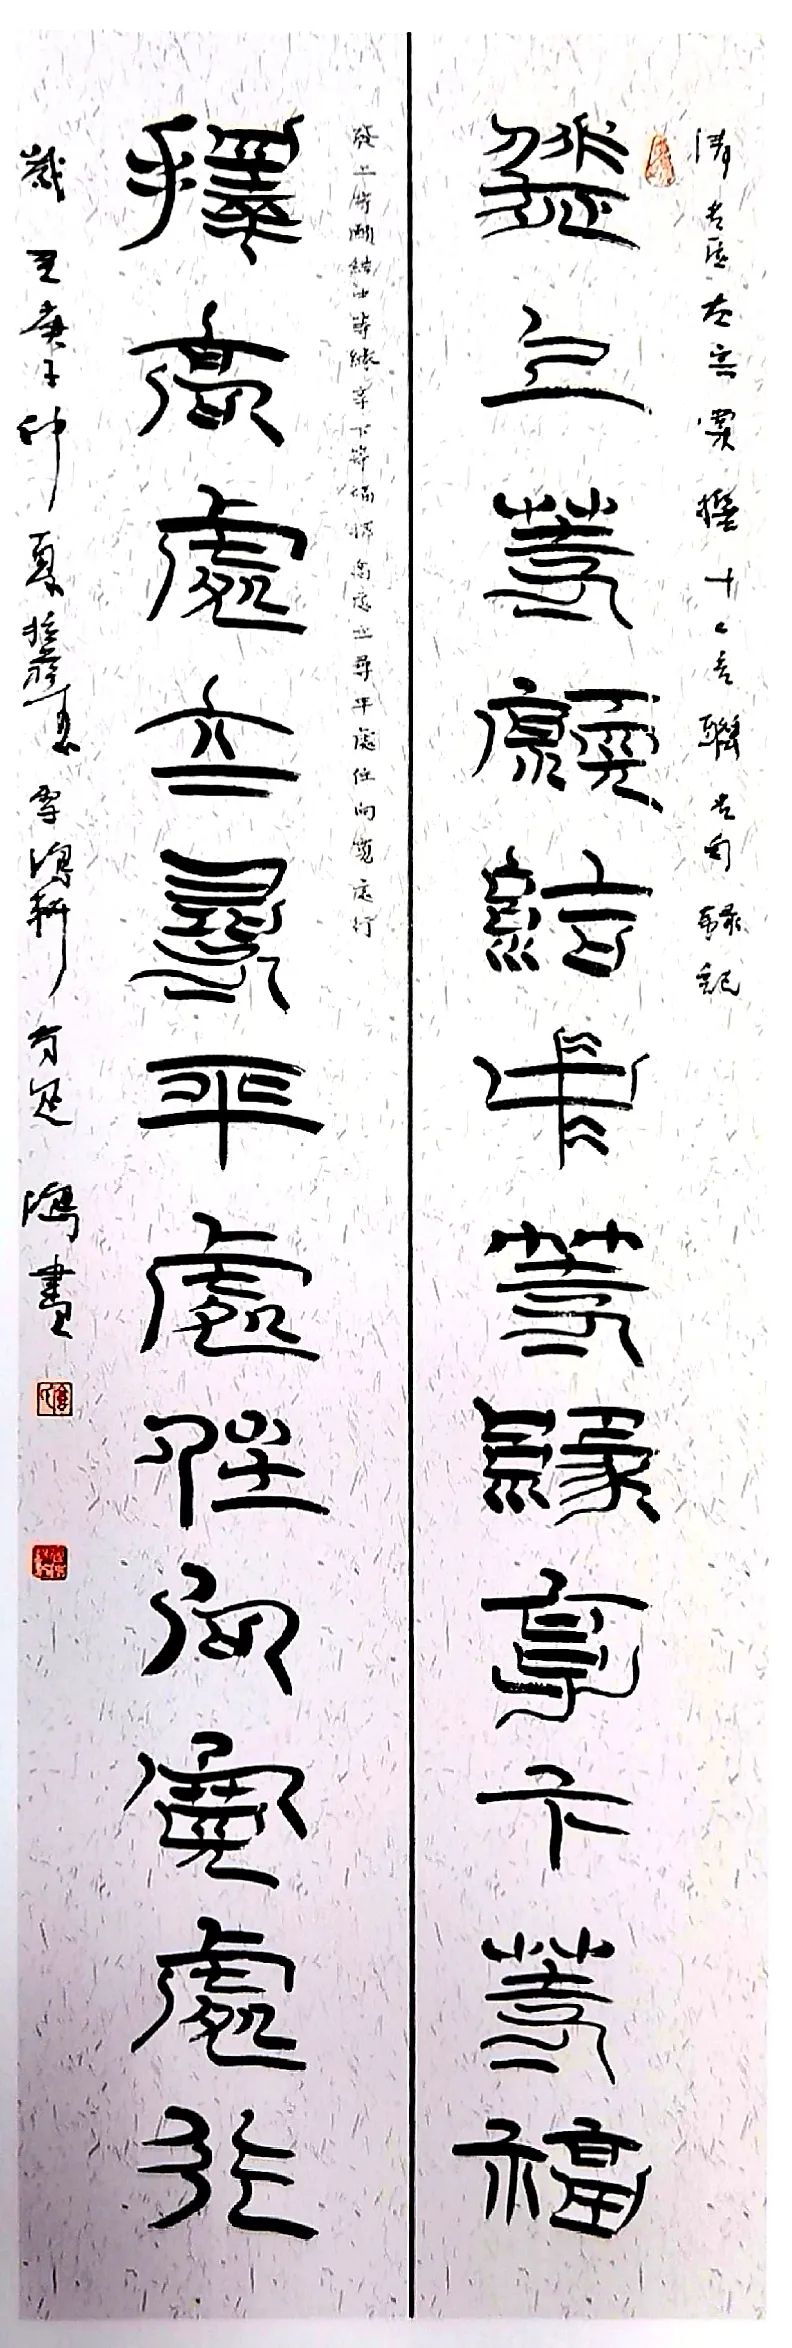 清 左宗棠撰十二言聯 句録記
發上等願結中等緣享下等福
發上等願結中等緣享下等福擇高處立尋平處住向寬處行
擇高處立尋平處住向寬處行
歲 庚子仲夏 鴻 鴻書